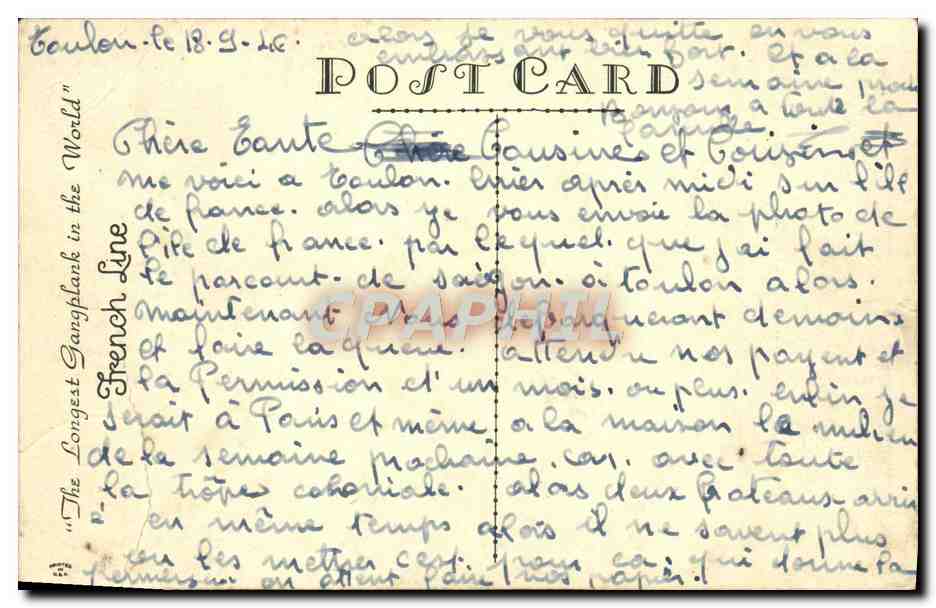 Toulon - le 18-9-46.
alors je vous quitte en vous
embrassant bien fort. Et a la
semaine
Bonjour a toute la
famille
POST CARD
Chère Tante Cousines et Cousins et
me voici a Toulon. hier après midi sur l'ile
de france. alors je vous envoie la photo de
l'ile de france. par lequel. que j'ai fait
le parcourt. de saigon. à toulon alors.
maintenant nous demain
et faire la queue. attendre nos payent et
la Permission d'un mois. ou plus. enfin je
serait à Paris et même a la maison le milieu
de la semaine prochaine. car. avec toute
la trôpe coloniale. alors deux bateaux arrivé
en même temps alors il ne savent plus
ou les mettre c'est pour ça. qui donne la
permission on attent faire nos papier.
"The Longest Gangplank in the World"
French Line
PRINTED IN U.S.A.
CPAPHIL